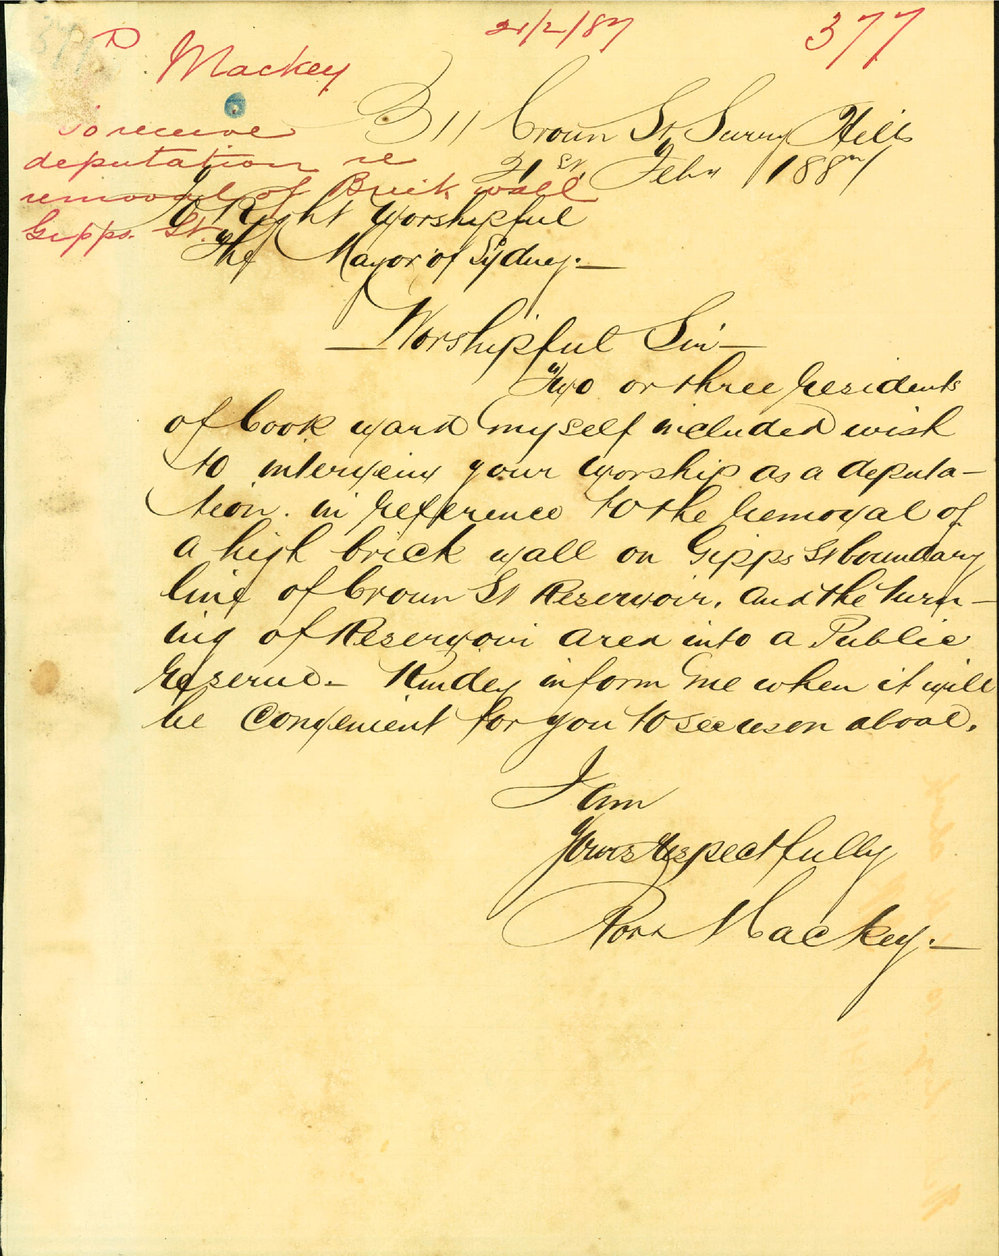 R Mackey
21/2/87
377
To receive
deputation re
removal of Brick wall
Gipps. St.
311 Crown St Surry Hills
21st Feby 1887
Right Worshipful
The Mayor of Sydney.—
—Worshipful Sir—
Two or three Residents
of Cook ward myself included wish
to interview your Worship as a deputa-
tion. in Reference to the Removal of
a high brick wall on Gipps St boundary
line of Crown St Reservoir. and the turn-
ing of Reservoir area into a Public
Reserve— Kindly inform me when it will
be Convenient for you to see us on above.
I am
Yours Respectfully
Mackey.—